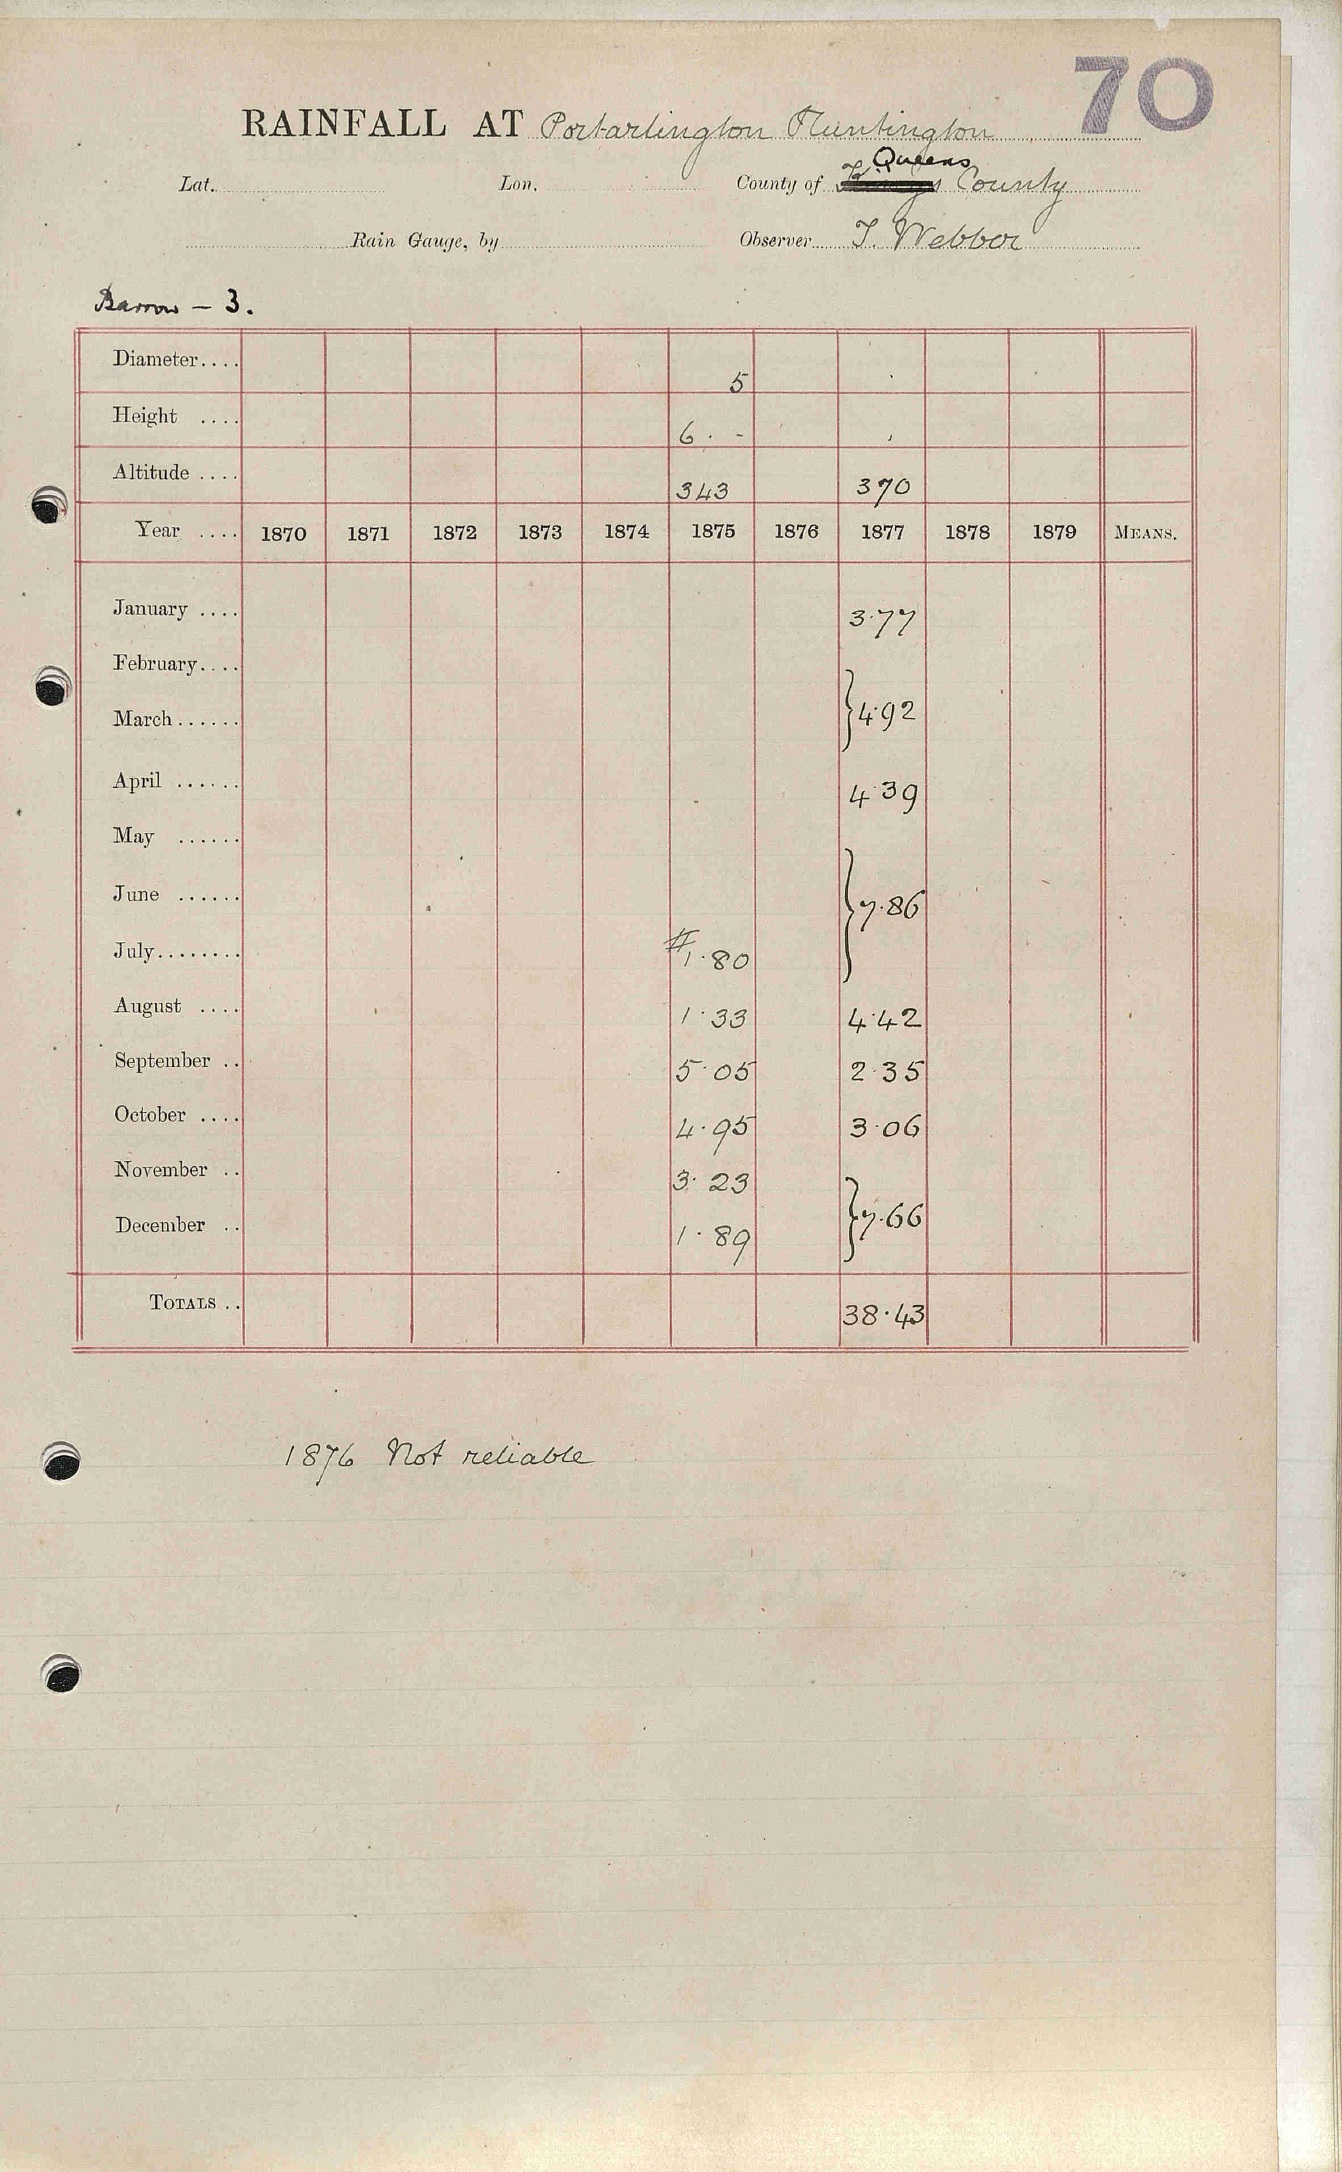 70
RAINFALL AT Portarlington Huntington
Queens
Lat. Lon. County of Kings County
Rain Gauge, by Observer T. Webber
Barrow - 3.
Diameter.... 5
Height .... 6. -
Altitude .... 343 370
Year .... 1870 1871 1872 1873 1874 1875 1876 1877 1878 1879 MEANS.
January .... 3.77
February....
March...... } 4.92
April ...... 4.39
May ......
June ...... } 7.86
July........ # 1.80
August .... 1.33 4.42
September .. 5.05 2.35
October .... 4.95 3.06
November .. 3.23
December .. 1.89 } 7.66
TOTALS .. 38.43
1876 Not reliable